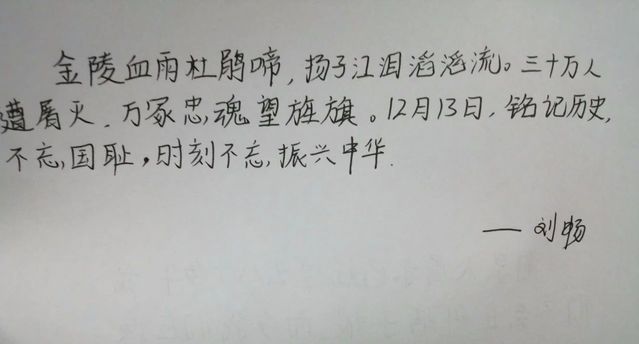 金陵血雨杜鹃啼,扬子江泪滔滔流。三十万人
遭屠灭.万冢忠魂望旌旗。12月13日.铭记历史,
不忘国耻,时刻不忘,振兴中华.
——刘畅